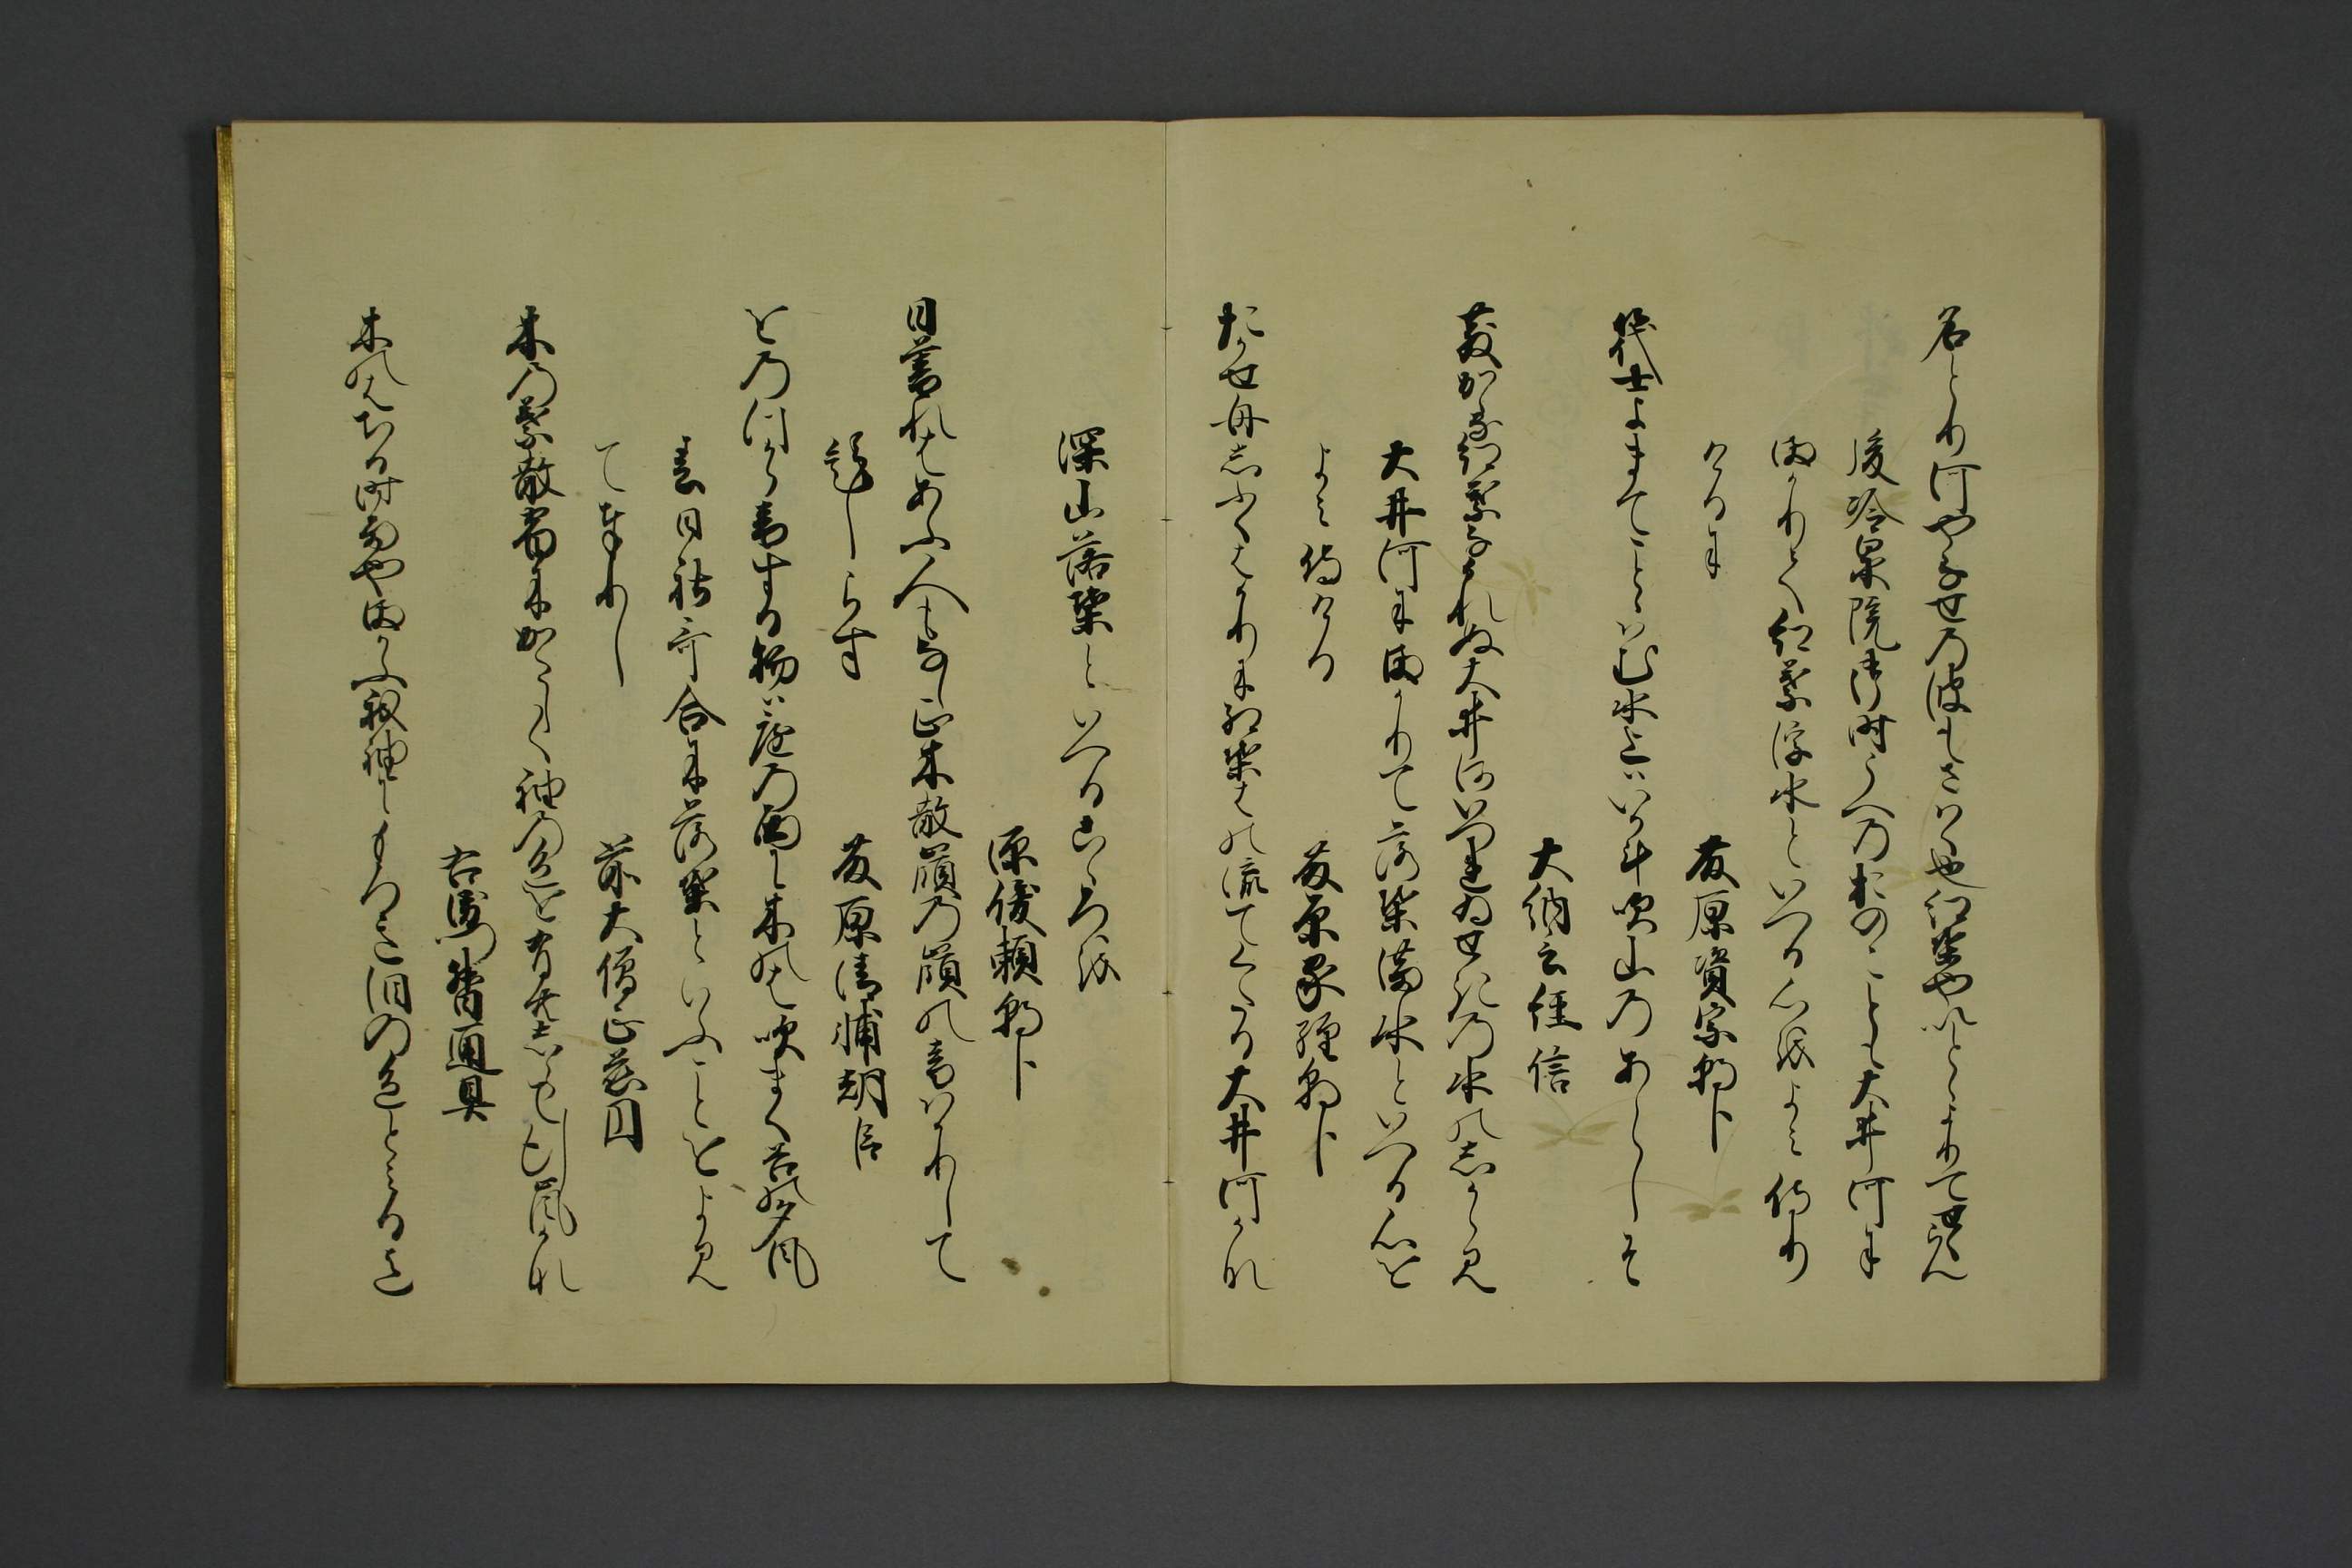 名とり河やなせの浪もさはく也紅葉やいとゝよりてせくらん
後冷泉院御時うへのおのことも大井河に
まかりて紅葉浮水といへる心をよみ侍り
けるに
藤原資宗朝臣
筏士よまてことゝはむ水上はいか斗吹山のあらしそ
大納言経信
散かゝる紅葉なかれぬ大井河いつれゐせきの水のしからみ
大井河にまかりて落葉満水といへる心を
よみ侍ける
藤原家経朝臣
たかせ舟しふくはかりに紅葉はの流てくたる大井河かな
深山落葉といへるこゝろを
源俊頼朝臣
日暮れはあふ人もなし正木散嶺の嵐の音はかりして
題しらす
藤原清輔朝臣
をのつから音する物は庭の面に木のは吹まく谷の夕風
春日社哥合に落葉といふことをよみ
て奉りし
前大僧正慈円
木の葉散宿にかたしく袖の色を有ともしらてゆく嵐かな
右衛門督通具
木のはちる時雨やまかふ我袖にもろき泪の色とみるまて